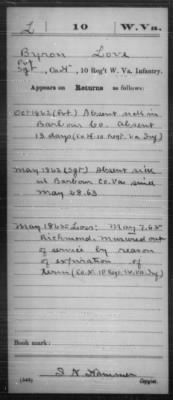 L | 10 | W. Va.
Byron Love
Pvt
Sgt, Co. H, 10 Reg't W. Va. Infantry.
Appears on Returns as follows:
Oct 1862 (Pvt.) Absent sick in
Barbour Co. Absent
13 days (Co H 10 Regt Va Inf)
May 1863 (Sgt) Absent sick
at Barbour Co. Va since
May 28. 63
May 1865 Loss: May 7. 65
Richmond. Mustered out
of service by reason
of expiration of
term (Co. H. 10 Regt. W. Va. Inf)
Book mark:
S. H. Hammer
Copyist.